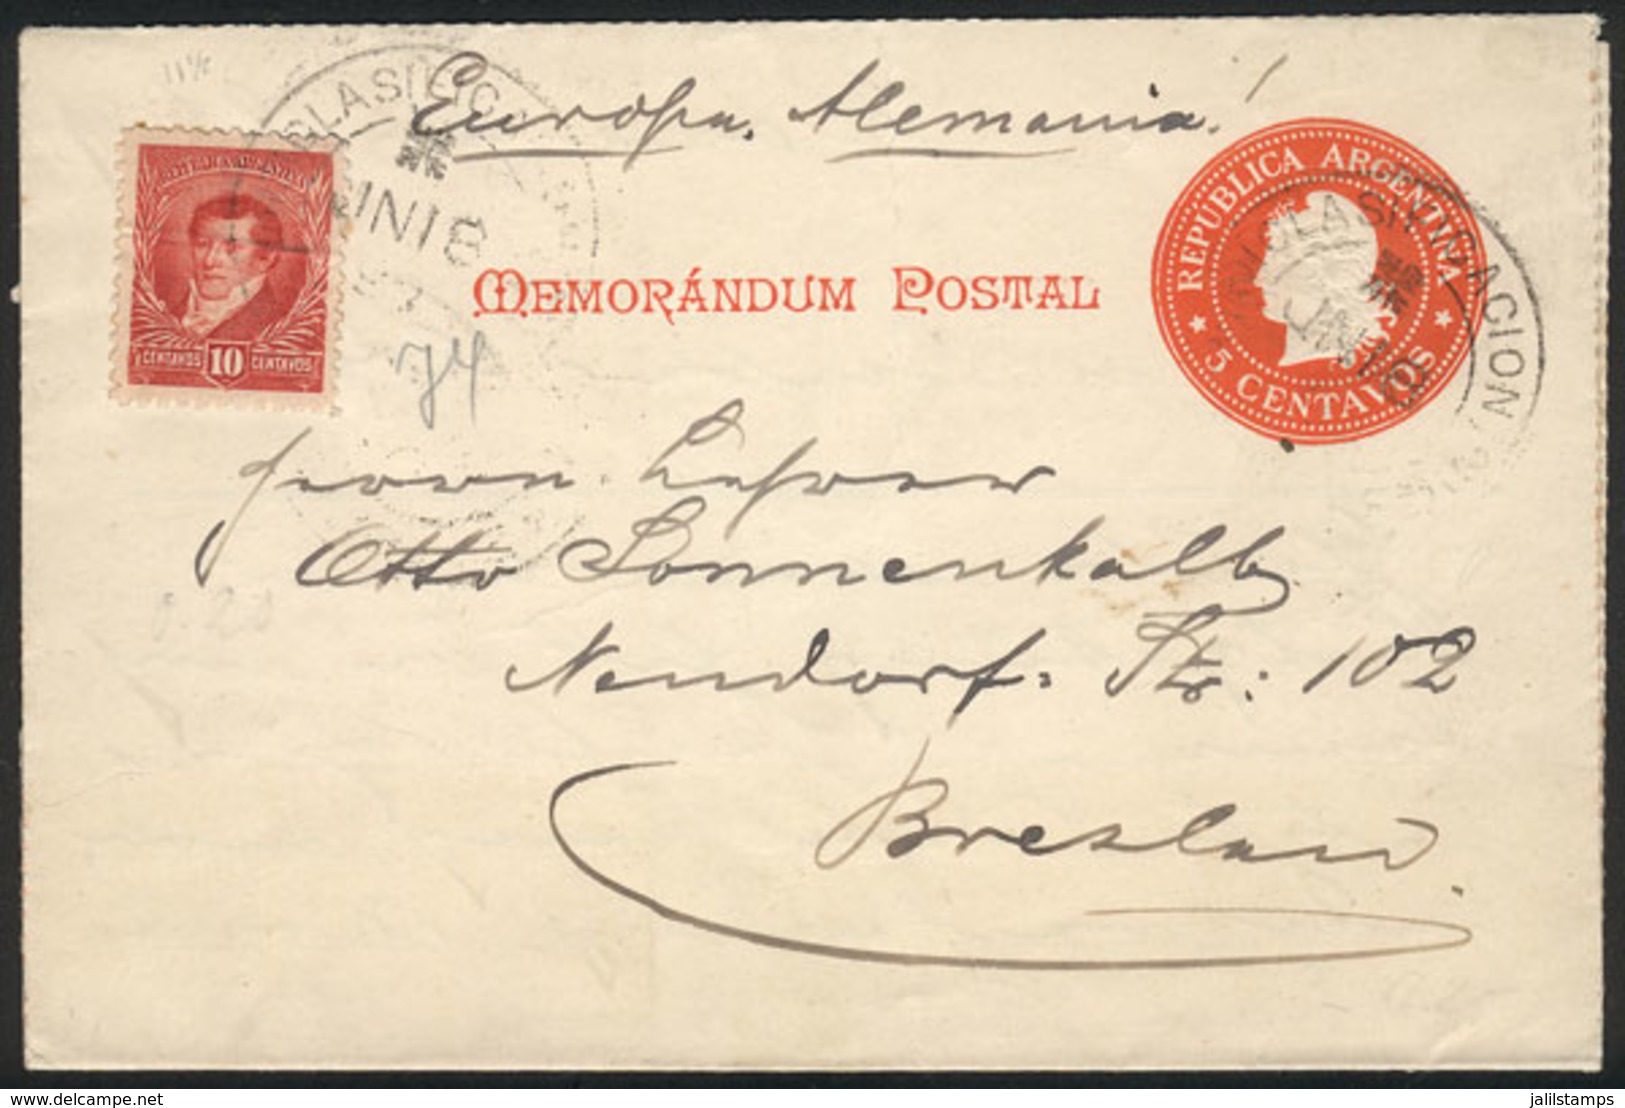 Europa. Alemania!
REPUBLICA ARGENTINA
CENTAVOS 10 CENTAVOS
CLASIFICA
JUN 18
74
MEMORÁNDUM POSTAL
REPUBLICA ARGENTINA
5 CENTAVOS
CLASIFICACION
JUN 18
Herrn. Lehrer
Otto Sonnenkalb
Neudorf. Str: 102
Breslau.
delcampe.net
jalilstamps